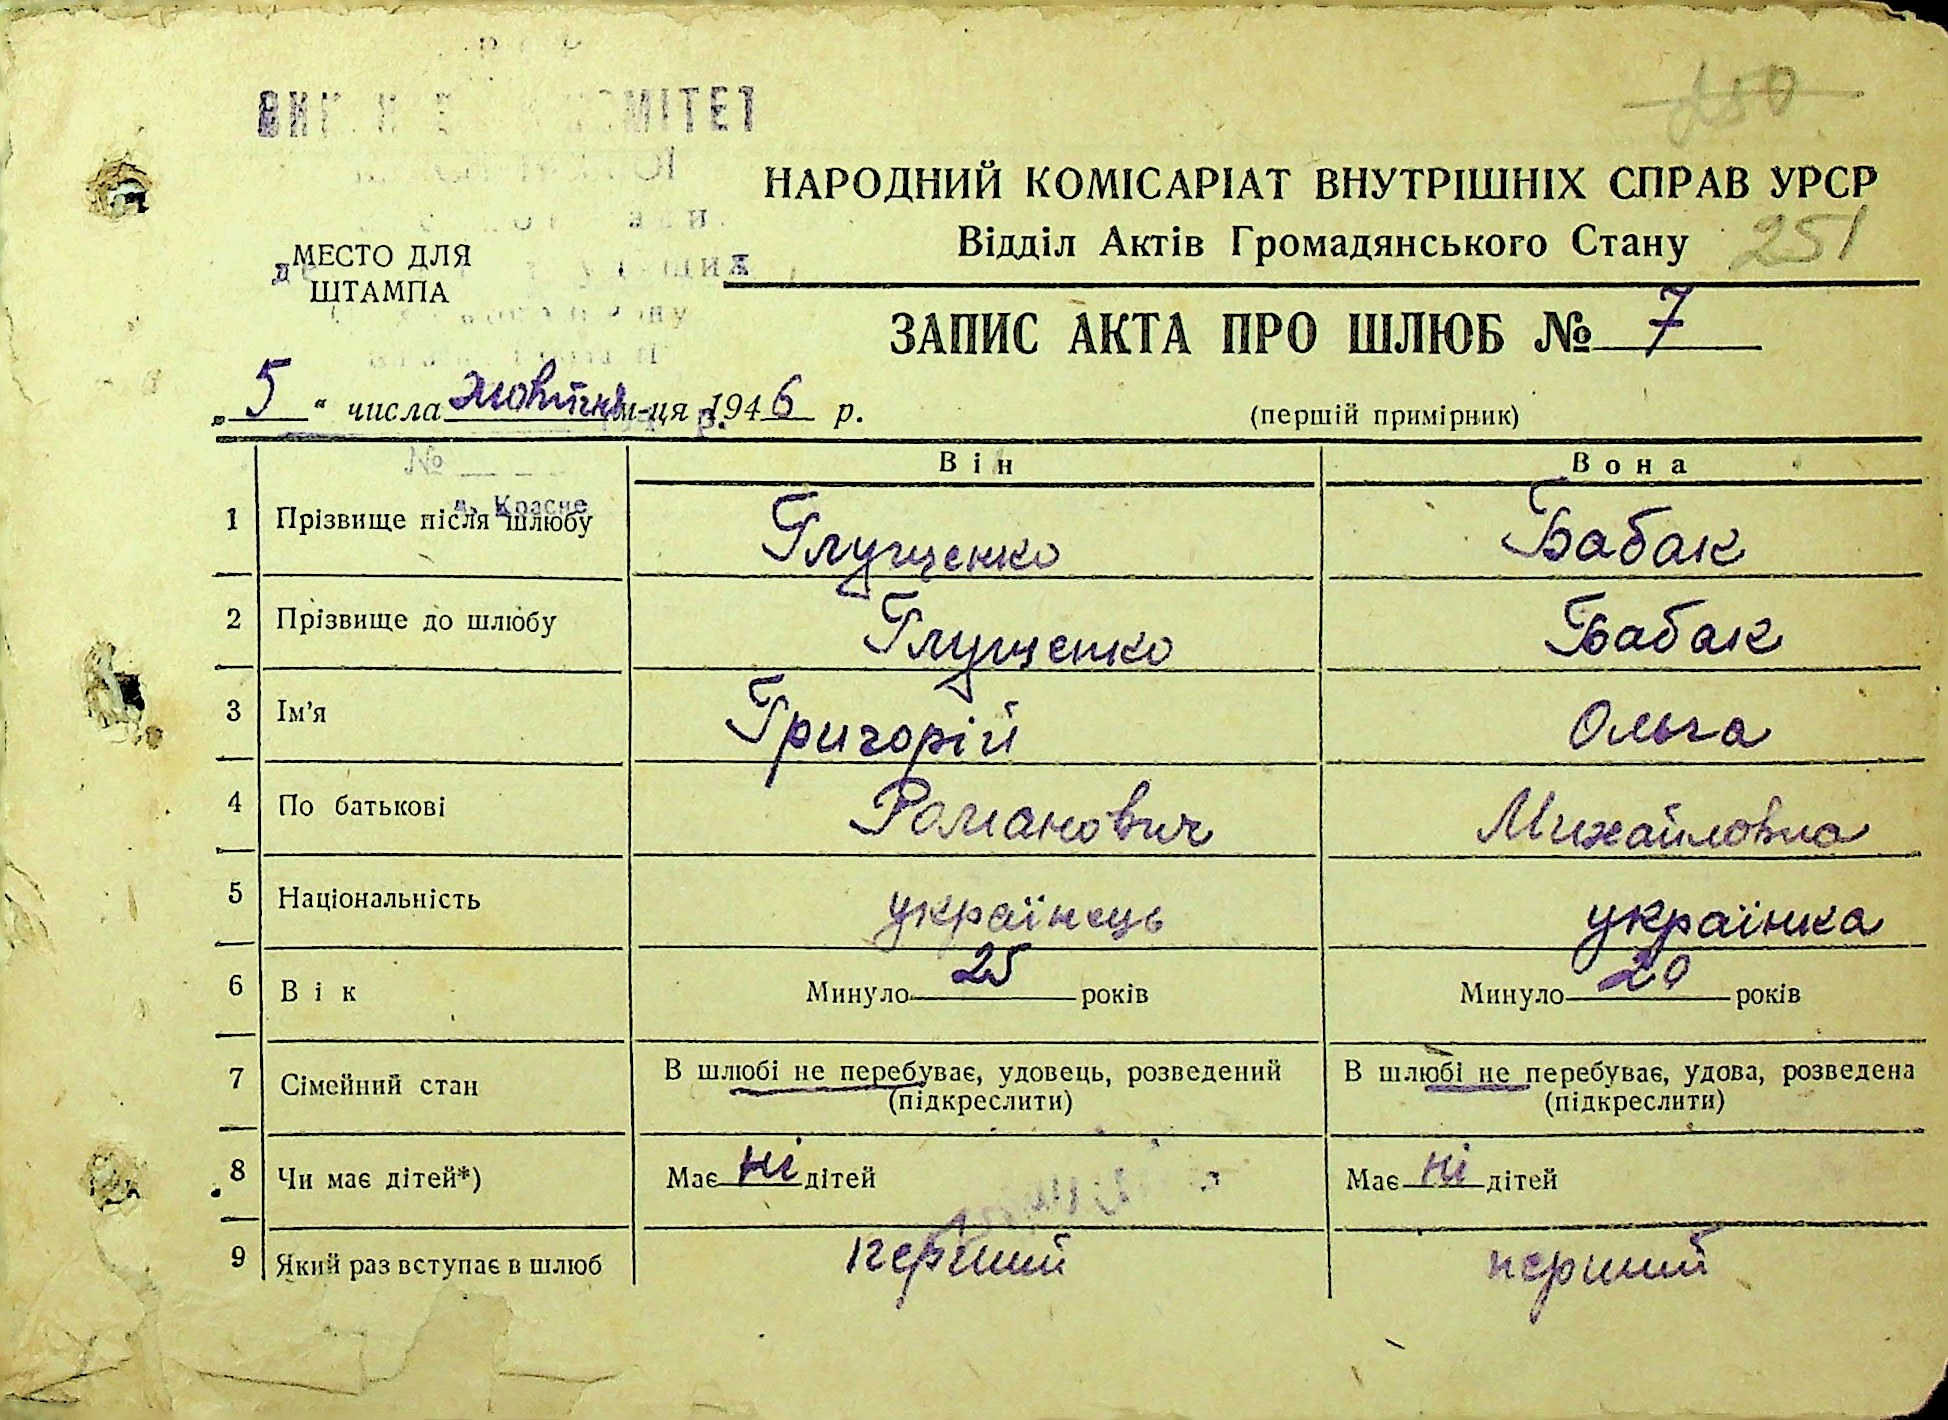 250
КОМІТЕТ
НАРОДНИЙ КОМІСАРІАТ ВНУТРІШНІХ СПРАВ УРСР
Відділ Актів Громадянського Стану 251
МЕСТО ДЛЯ
ШТАМПА
ЗАПИС АКТА ПРО ШЛЮБ № 7
„5“ числа жовтня м-ця 1946 р.
(першій примірник)
№
Він Вона
с. Красне
1 Прізвище після шлюбу Глущенко Бабак
2 Прізвище до шлюбу Глущенко Бабак
3 Ім'я Григорій Ольга
4 По батькові Романович Михайловна
5 Національність українець українка
6 Вік Минуло 25 років Минуло 20 років
7 Сімейний стан В шлюбі не перебуває, удовець, розведений В шлюбі не перебуває, удова, розведена
(підкреслити) (підкреслити)
8 Чи має дітей*) Має ні дітей Має ні дітей
9 Який раз вступає в шлюб перший перший